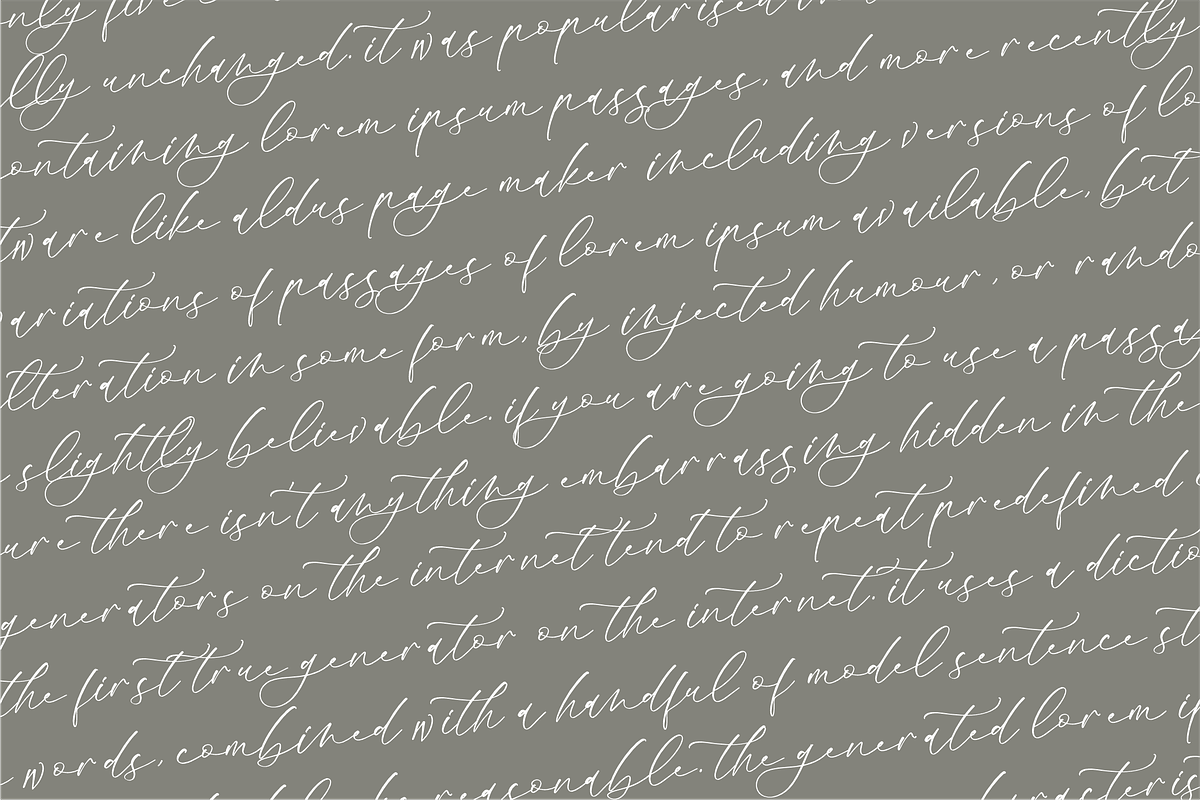 only five
lly unchanged. it was popularised in
ontaining lorem ipsum passages, and more recently
tware like aldus page maker including versions of lo
ariations of passages of lorem ipsum available, but
lteration in some form, by injected humour, or rando
slightly believable. if you are going to use a passa
ure there isn't anything embarrassing hidden in the
generators on the internet tend to repeat predefined
the first true generator on the internet. it uses a dictio
words, combined with a handful of model sentence st
reasonable. the generated lorem ip